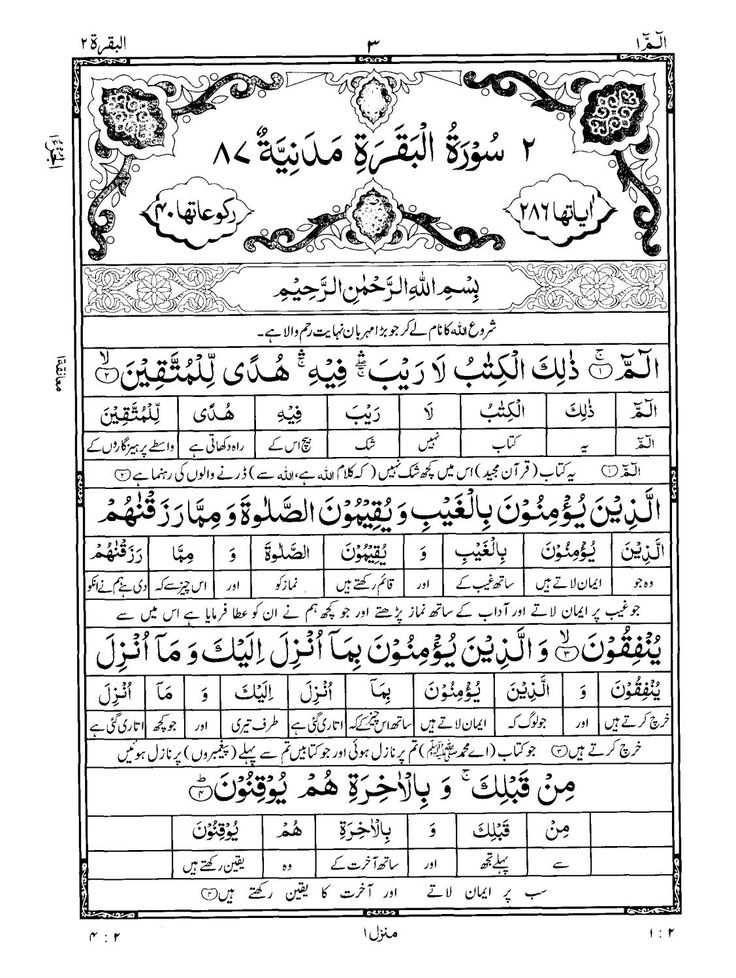 الٓمّٓ ١
٣
البقرة ٢
٢ سُوْرَةُ الْبَقَرَةِ مَدَنِيَّةٌ ٨٧
اٰیاتها ٢٨٦
رکوعاتها ٤٠
بِسْمِ اللّٰهِ الرَّحْمٰنِ الرَّحِيْمِ
شروع اللہ کا نام لے کر جو بڑا مہربان نہایت رحم والا ہے۔
الٓمّٓ ۚ﴿١﴾ ذٰلِكَ الْكِتٰبُ لَا رَيْبَ ۛۖ فِيْهِ ۛۚ هُدًى لِّلْمُتَّقِيْنَ ۙ﴿٢﴾
الٓمّٓ ذٰلِكَ الْكِتٰبُ لَا رَيْبَ فِيْهِ هُدًى لِّلْمُتَّقِيْنَ
الٓمّٓ یہ کتاب نہیں شک بیچ اس کے راہ دکھاتی ہے واسطے پرہیزگاروں کے
الٓمّٓ ﴿١﴾ یہ کتاب (قرآن مجید) اس میں کچھ شک نہیں (کہ کلام اللہ ہے، اللہ سے) ڈرنے والوں کی رہنما ہے ﴿٢﴾
الَّذِيْنَ يُؤْمِنُوْنَ بِالْغَيْبِ وَ يُقِيْمُوْنَ الصَّلٰوةَ وَ مِمَّا رَزَقْنٰهُمْ
الَّذِيْنَ يُؤْمِنُوْنَ بِالْغَيْبِ وَ يُقِيْمُوْنَ الصَّلٰوةَ وَ مِمَّا رَزَقْنٰهُمْ
وہ جو ایمان لاتے ہیں ساتھ غیب کے اور قائم رکھتے ہیں نماز کو اور اس چیز سے کہ دی ہے ہم نے انکو
جو غیب پر ایمان لاتے اور آداب کے ساتھ نماز پڑھتے اور جو کچھ ہم نے ان کو عطا فرمایا ہے اس میں سے
يُنْفِقُوْنَ ۙ﴿٣﴾ وَ الَّذِيْنَ يُؤْمِنُوْنَ بِمَاۤ اُنْزِلَ اِلَيْكَ وَ مَاۤ اُنْزِلَ
يُنْفِقُوْنَ وَ الَّذِيْنَ يُؤْمِنُوْنَ بِمَاۤ اُنْزِلَ اِلَيْكَ وَ مَاۤ اُنْزِلَ
خرچ کرتے ہیں اور جو لوگ کہ ایمان لاتے ہیں ساتھ اس چیز کے کہ اتاری گئی ہے طرف تیری اور جو کچھ اتاری گئی ہے
خرچ کرتے ہیں ﴿٣﴾ جو کتاب (اے محمد ﷺ) تم پر نازل ہوئی اور جو کتابیں تم سے پہلے (پیغمبروں) پر نازل ہوئیں
مِنْ قَبْلِكَ ۚ وَ بِالْاٰخِرَةِ هُمْ يُوْقِنُوْنَ ؕ﴿٤﴾
مِنْ قَبْلِكَ وَ بِالْاٰخِرَةِ هُمْ يُوْقِنُوْنَ
سے پہلے تجھ اور ساتھ آخرت کے وہ یقین رکھتے ہیں
سب پر ایمان لاتے اور آخرت کا یقین رکھتے ہیں ﴿٤﴾
٢ : ١
منزل ١
٢ : ٤
معانقة ١